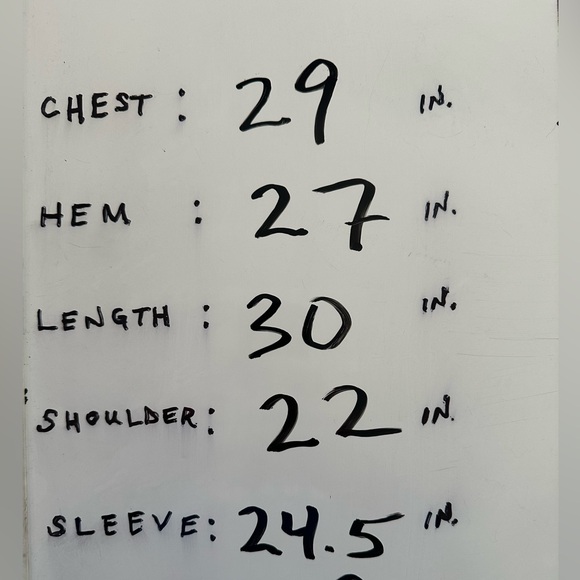 CHEST : 29 IN.
HEM : 27 IN.
LENGTH : 30 IN.
SHOULDER: 22 IN.
SLEEVE: 24.5 IN.